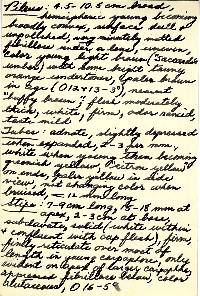 Pileus: 4.5-10.5 cm broad,
hemispheric young becoming
broadly convex, surface dull &
unpolished, very minutely matted
fibrillose under a lens, uneven,
color young light brown (Saccardo's
umber), older some bright tawny
orange undertones, & paler brown
in age (O12Y13-3°) nearest
"buffy brown"; flesh moderately
thick, white, firm, odor rancid,
taste mild
Tubes: adnate, slightly depressed
when expanded, 2-3 per mm,
white when young then becoming
greenish yellow, "citron yellow"
on ends, paler yellow in side
view, not changing color when
bruised, - 12 mm long
Stipe: 7-9 cm long, 15-18 mm at
apex, 2-3 cm at base,
subclavate, solid (white within)
& confluent with cap flesh), firm,
finely reticulate over most of
length in young carpophores, only
evident on apex of larger carpophores,
appressed fibrillose below, color
alutaceous, O16-5°